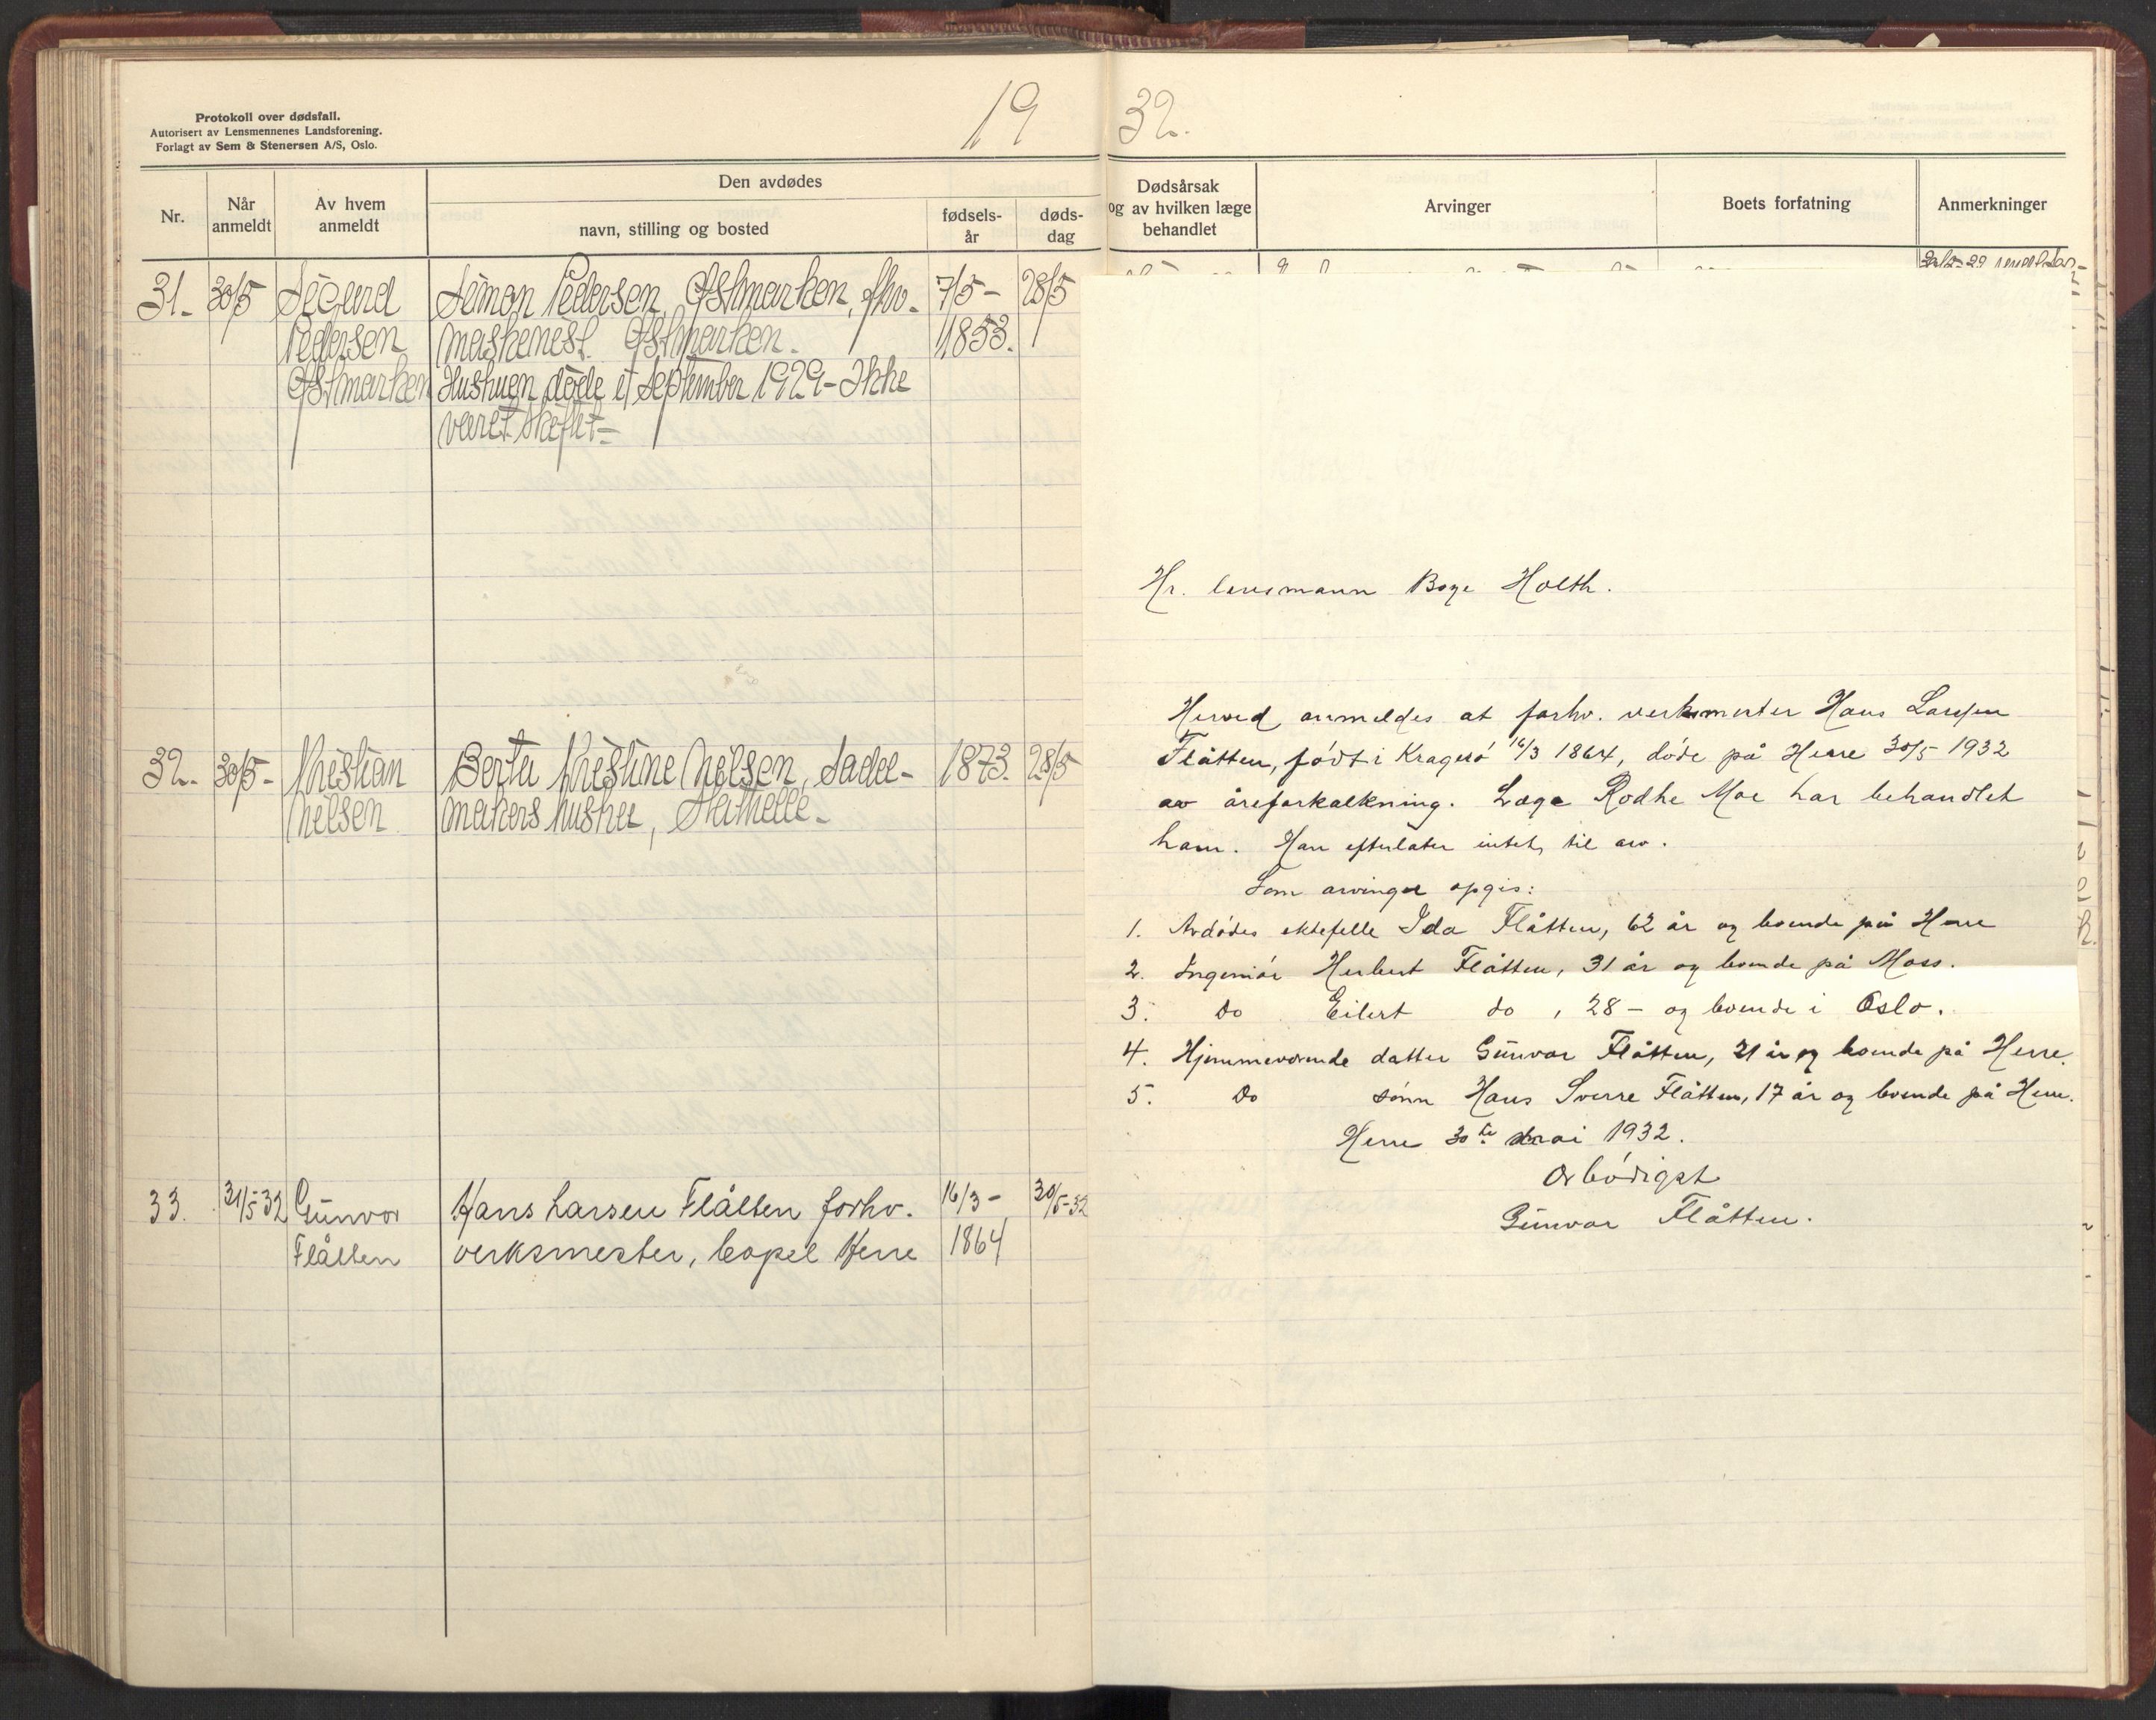 Protokoll over dødsfall.
Autorisert av Lensmennenes Landsforening.
Forlagt av Sem & Stenersen A/S, Oslo.
19
Nr.
Når anmeldt
Av hvem anmeldt
Den avdødes
navn, stilling og bosted
fødsels-år
døds-dag
31. 30/5 Sigurd Simon Pedersen, Østmarken, fhv. 7/5- 28/5
Pedersen maskinist Østmarken. 1853.
Østmarken Hustruen døde i september 1929 - Ikke
været skiftet-
32. 30/5- Kristian Berta Kristine Nilsen, Sadel- 1873. 28/5
Nilsen makers hustru, Stathelle.
33. 31/5-32 Gunvor Hans Larsen Flåtten forhv. 16/3- 30/5-32
Flåtten verksmester, bopel Herre 1864
32.
Dødsårsak og av hvilken læge behandlet
Arvinger
Boets forfatning
Anmerkninger
Hr. lensmann Boye Holth.
Herved anmeldes at forhv. verksmester Hans Larsen
Flåtten, født i Kragerø 16/3 1864, døde på Herre 30/5 1932
av åreforkalkning. Læge Rodhe Moe har behandlet
ham. Han efterlater intet til arv.
Som arvinger opgis:
1. Avdødes ektefelle Ida Flåtten, 62 år og boende på Herre
2. Ingeniør Herbert Flåtten, 31 år og boende på Moss.
3. Do Eilert do, 28 - og boende i Oslo.
4. Hjemmeværende datter Gunvor Flåtten, 21 år og boende på Herre.
5. Do sønn Hans Sverre Flåtten, 17 år og boende på Herre.
Herre 30te mai 1932.
Ærbødigst
Gunvor Flåtten.